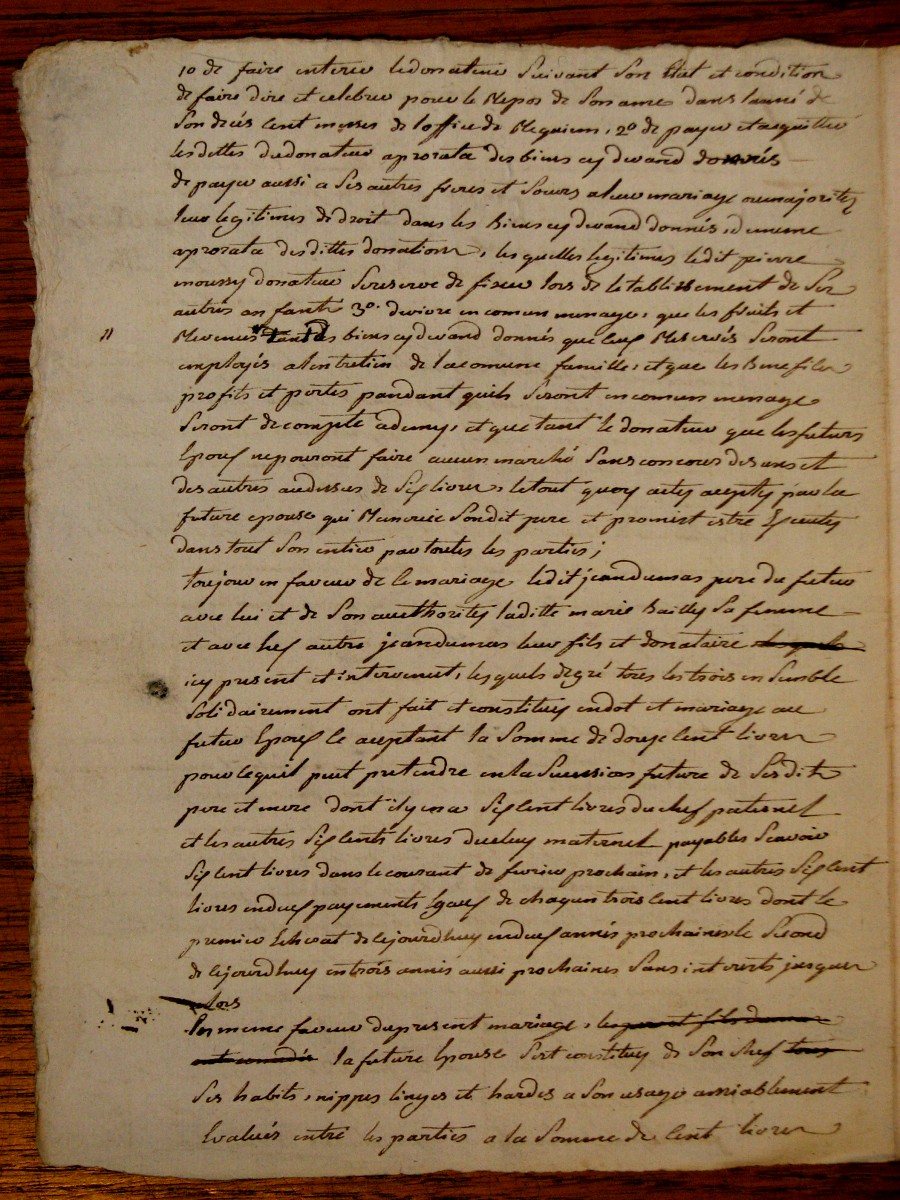 1o de faire enterer ledonateur suivant son état et condition
de faire dire et celebrer pour le Repos de son ame dans lanné de
son decés cent messes de loffice de Requiem, 2o de payer et acquitter
les dettes dudonateur aprorata des biens cy devand donnés
de payer aussi a ses autres freres et soeurs aleur mariage ou majorites
leur legitimes de droit dans les Biens cy devand donnés, de meme
aprorata desdittes donations, les quelles legitimes ledit pierre
moussy donateur se reserve de fixer lors de letablissement de ses
autres anfants 3o. de vivre en comun menage, que les fruits et
Revenus tant des biens cy devand donnés que ceux Reservés seront
employés alentretien de la comune famille, et que les Benefices
profits et pertes pandant quils seront en comun menage
seront de compte ademy, et que tant le donateur que les futurs
Epoux ne pouront faire aucun marché sans concours des uns et
des autres audessus de six livres, le tout quoy actes aceptes par la
future epouse qui Remercie sondit pere et promist estre Executes
dans tout son entier par toutes les parties;
toujour en faveur de ce mariage ledit jean dumas pere du futur
avec lui et de son authorites laditte marie Bailly sa femme
et avec eux autre jean dumas leur fils et donataire
icy present et intervenent, les quels de gré tous les trois en semble
solidairement ont fait et constitues en dot et mariage au
futur Epoux ce aceptant la somme de douze cent livres
pour ce quil peut pretendre en la succession future de sesdits
pere et mere dont il y en a six cent livres du chef paternel
et les autres six cents livres du chef maternel payables scavoir
six cent livres dans le courant de fevrier prochain, et les autres six cent
livres en deux payements Egaux de chaqun trois cent livres dont le
premier Echerat de cejourdhuy en deux annés prochaines le second
de cejourdhuy en trois annés aussi prochaines sans interets jusques
alors
En meme faveur du present mariage,
la future Epouse sest constitues de son chef
ses habits, nippes linges et hardes a son usage amiablement
Evalués entre les parties a la somme de cent livres